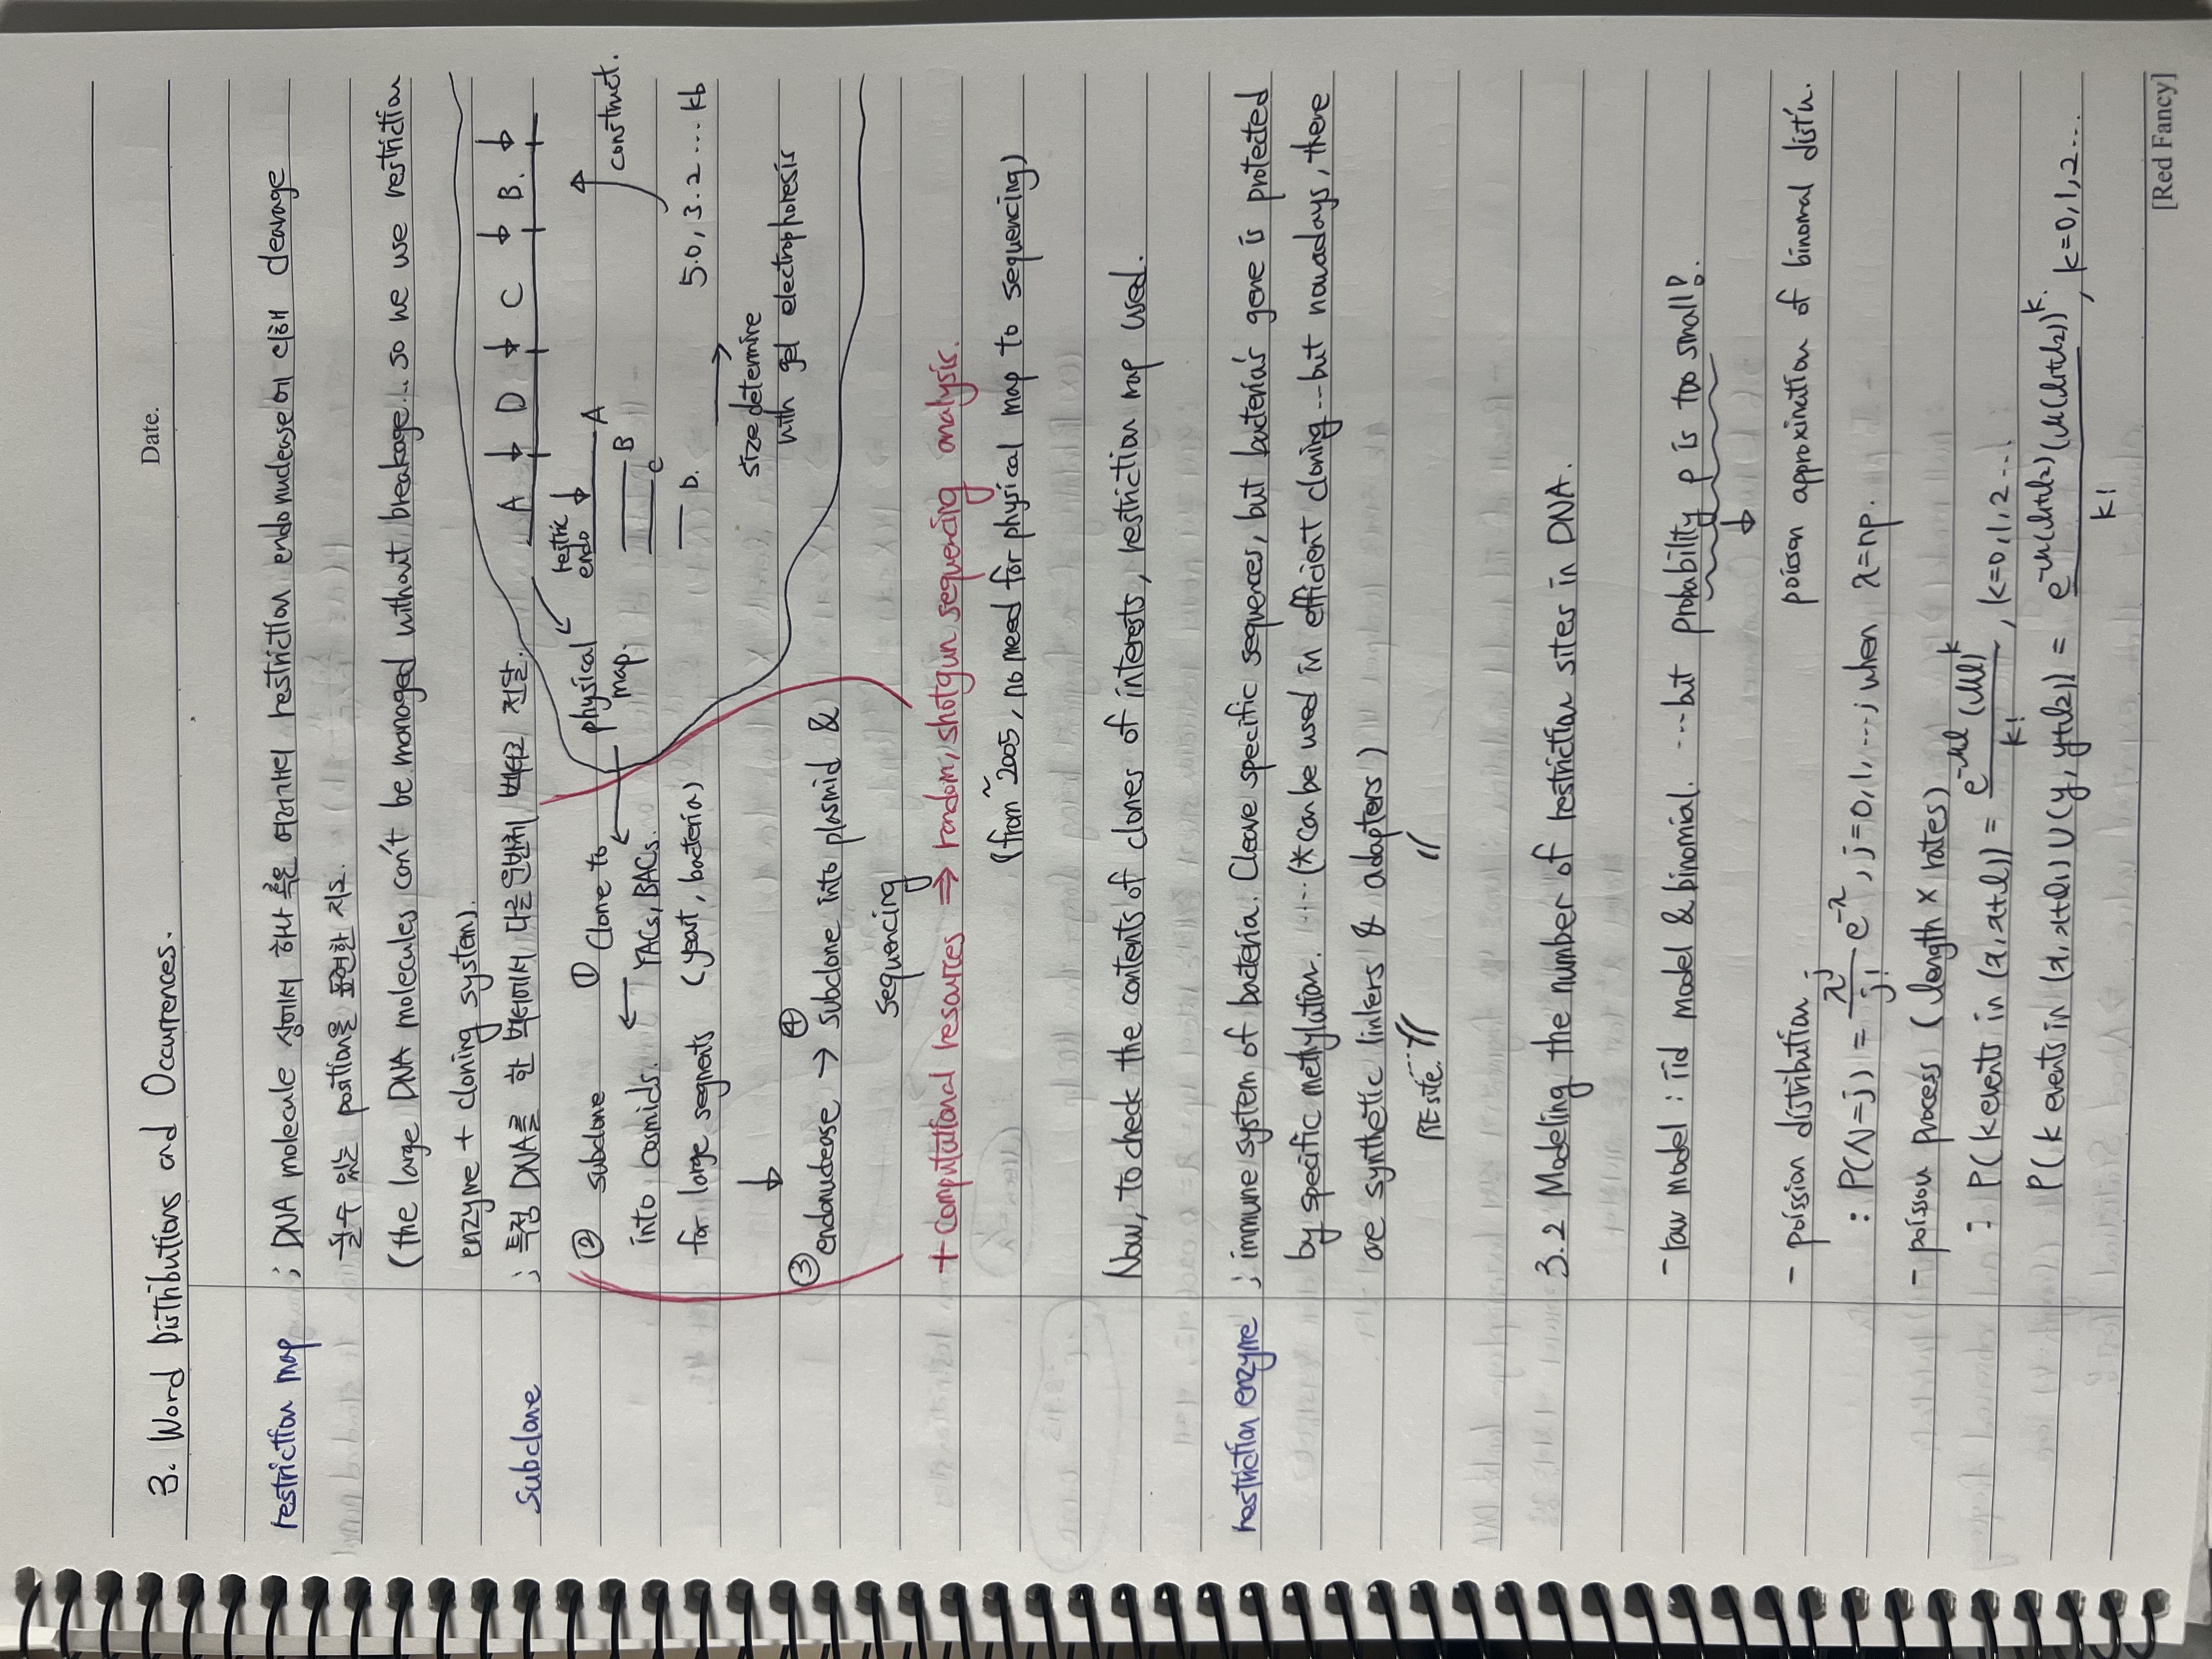 Date.
3. Word Distributions and Occurrences.
restriction map ; DNA molecule 상에서 하나 혹은 여러개의 restriction endonuclease에 의해 cleavage
될수 있는 position을 표현한 지도.
(the large DNA molecules can't be managed without breakage... so we use restriction
enzyme + cloning system).
Subclone ; 특정 DNA를 한 벡터에서 다른 벡터로 전달.
A D C B.
restric
endo
A
B
C
D.
construct.
5.0, 3.2 ... kb
size determine
with gel electrophoresis
physical
map.
① Clone to
YACs, BACs.
(yeast, bacteria)
② subclone
into cosmids.
for large segments
③ endonuclease → ④ subclone into plasmid &
sequencing
+ Computational resources ⇒ random/shotgun sequencing analysis.
(from ~2005, no need for physical map to sequencing)
Now, to check the contents of clones of interests, restriction map used.
restriction enzyme ; immune system of bacteria. Cleave specific sequences, but bacteria's gene is protected
by specific methylation. ... (* can be used in efficient cloning ... but nowadays, there
are synthetic linkers & adapters)
RE site.
3.2 Modeling the number of restriction sites in DNA.
- raw model : iid model & binomial. ... but probability p is too small!.
↓
poisson approximation of binomal distin.
- poission distribution
: P(N=j) = λ^j/j! e^-λ, j=0, 1, ... ; when λ=np.
- poisson process (length × rates)
: P(k events in (x, x+l)) = e^-μl (μl)^k / k! , k=0, 1, 2 ...
P(k events in (x, x+l1) ∪ (y, y+l2)) = e^-μ(l1+l2) (μ(l1+l2))^k. / k! , k=0, 1, 2 ...
[Red Fancy]